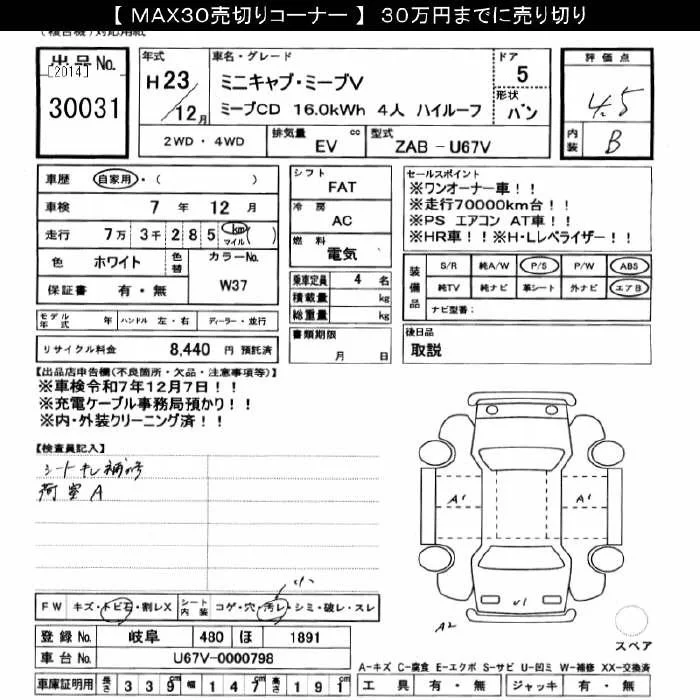 【 MAX30売切りコーナー 】 30万円までに売り切り
出品No. [2014] 30031
年式 H23/12月
車名・グレード ミニキャブ・ミーブV
ミーブCD 16.0kWh 4人 ハイルーフ
ドア 5
形状 バン
評価点 4.5
内装 B
2WD・4WD 排気量 EV cc 型式 ZAB - U67V
車歴 自家用・( )
車検 7年 12月
走行 7万 3千 2 8 5 km マイル ( )
色 ホワイト 色替 カラーNo. W37
保証書 有・無
モデル年式 年 ハンドル 左・右 ディーラー・並行
リサイクル料金 8,440 円 預託済
シフト FAT
冷房 AC
燃料 電気
乗車定員 4 名
積載量 kg
総重量 kg
書類期限 月 日
セールスポイント
※ワンオーナー車!!
※走行70000km台!!
※PS エアコン AT車!!
※HR車!!※H・Lレベライザー!!
装備品 S/R 純A/W P/S P/W ABS
純TV 純ナビ 革シート 外ナビ エアB
ナビ型番:
後日品
取説
【出品店申告欄(不良箇所・欠品・注意事項等)】
※車検令和7年12月7日!!
※充電ケーブル事務局預かり!!
※内・外装クリーニング済!!
【検査員記入】
シートキレ補修
荷室A
A1 A1
U1
A2
スペア
FW キズ・トビ石・割レX シート内装 コゲ・穴・汚レ・シミ・破レ・スレ
小
登録No. 岐阜 480 ほ 1891
車台No. U67V-0000798
A-キズ C-腐食 E-エクボ S-サビ U-凹ミ W-補修 XX-交換済
車庫証明用 長さ 339cm 幅 147cm 高さ 191cm
工具 有・無 ジャッキ 有・無